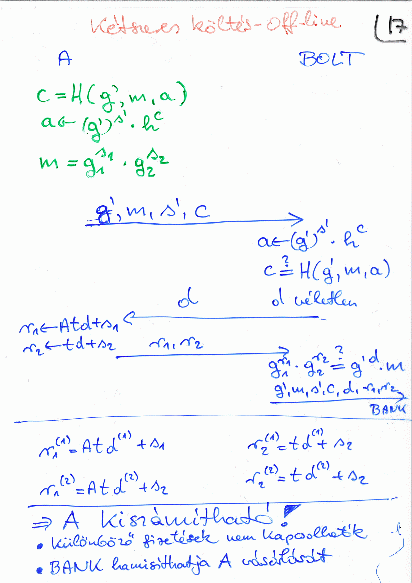 Kétszeres költés-off-line
17
A BOLT
c = H(g', m, a)
a ← (g')^s' · h^c
m = g₁^s₁ · g₂^s₂
g', m, s', c
a ← (g')^s' · h^c
c ≟ H(g', m, a)
d
d véletlen
r₁ ← Atd+s₁
r₂ ← td+s₂
r₁, r₂
g₁^r₁ · g₂^r₂ ≟ g'^d · m
g', m, s', c, d, r₁, r₂
BANK
r₁^(1) = Atd^(1) + s₁ r₂^(1) = td^(1) + s₂
r₁^(2) = Atd^(2) + s₂ r₂^(2) = td^(2) + s₂
⇒ A Kiszámítható!
• Különböző fizetések nem kapcolhatók
• BANK hamisíthatja A vásárlását